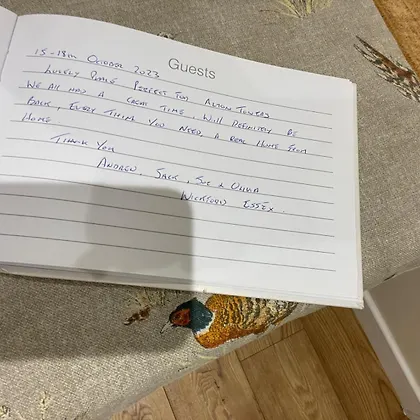 Guests
15-18th October 2023
Lovely Place Perfect for Alton Towers
We all had a great time, will definitly be
back, every think you need, a real home from
home.
Thank you
Andrew, Jack, Sue & Olivia
Wickford Essex.